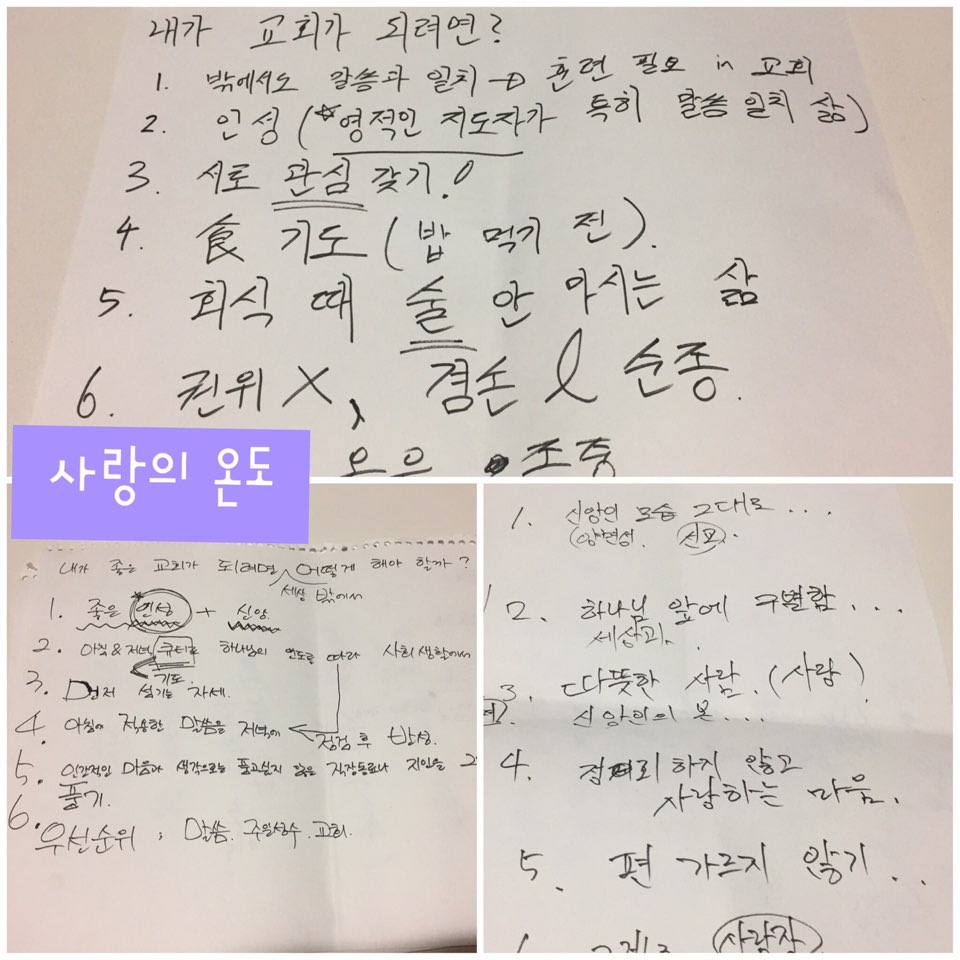 내가 교회가 되려면?
1. 밖에서도 말씀과 일치 → 훈련 필요 in 교회
2. 인성 (*영적인 지도자가 특히 말씀일치 삶)
3. 서로 관심 갖기!
4. 食 기도 (밥 먹기 전).
5. 회식 때 술 안 마시는 삶
6. 권위 X, 겸손 & 순종.
사랑의 온도
내가 좋은 교회가 되려면 어떻게 해야 할까?
세상 밖에서
1. 좋은 인성 + 신앙.
2. 아침&저녁 큐티로 하나님의 인도를 따라 사회생활에서
기도.
3. 먼저 섬기는 자세.
4. 아침에 적용한 말씀을 저녁에 점검 후 반성.
5. 인간적인 마음과 생각으로는 품고싶지 않은 직장동료나 지인을
품기.
6. 우선순위 ; 말씀. 주일성수. 교회.
1. 신앙인 모습 그대로....
(양면성. 선포.
2. 하나님 앞에 구별함...
세상과.
3. 따뜻한 사람. (사랑)
신앙인의 본....
4. 정죄하지 않고
사랑하는 마음.
5. 편 가르지 않기..